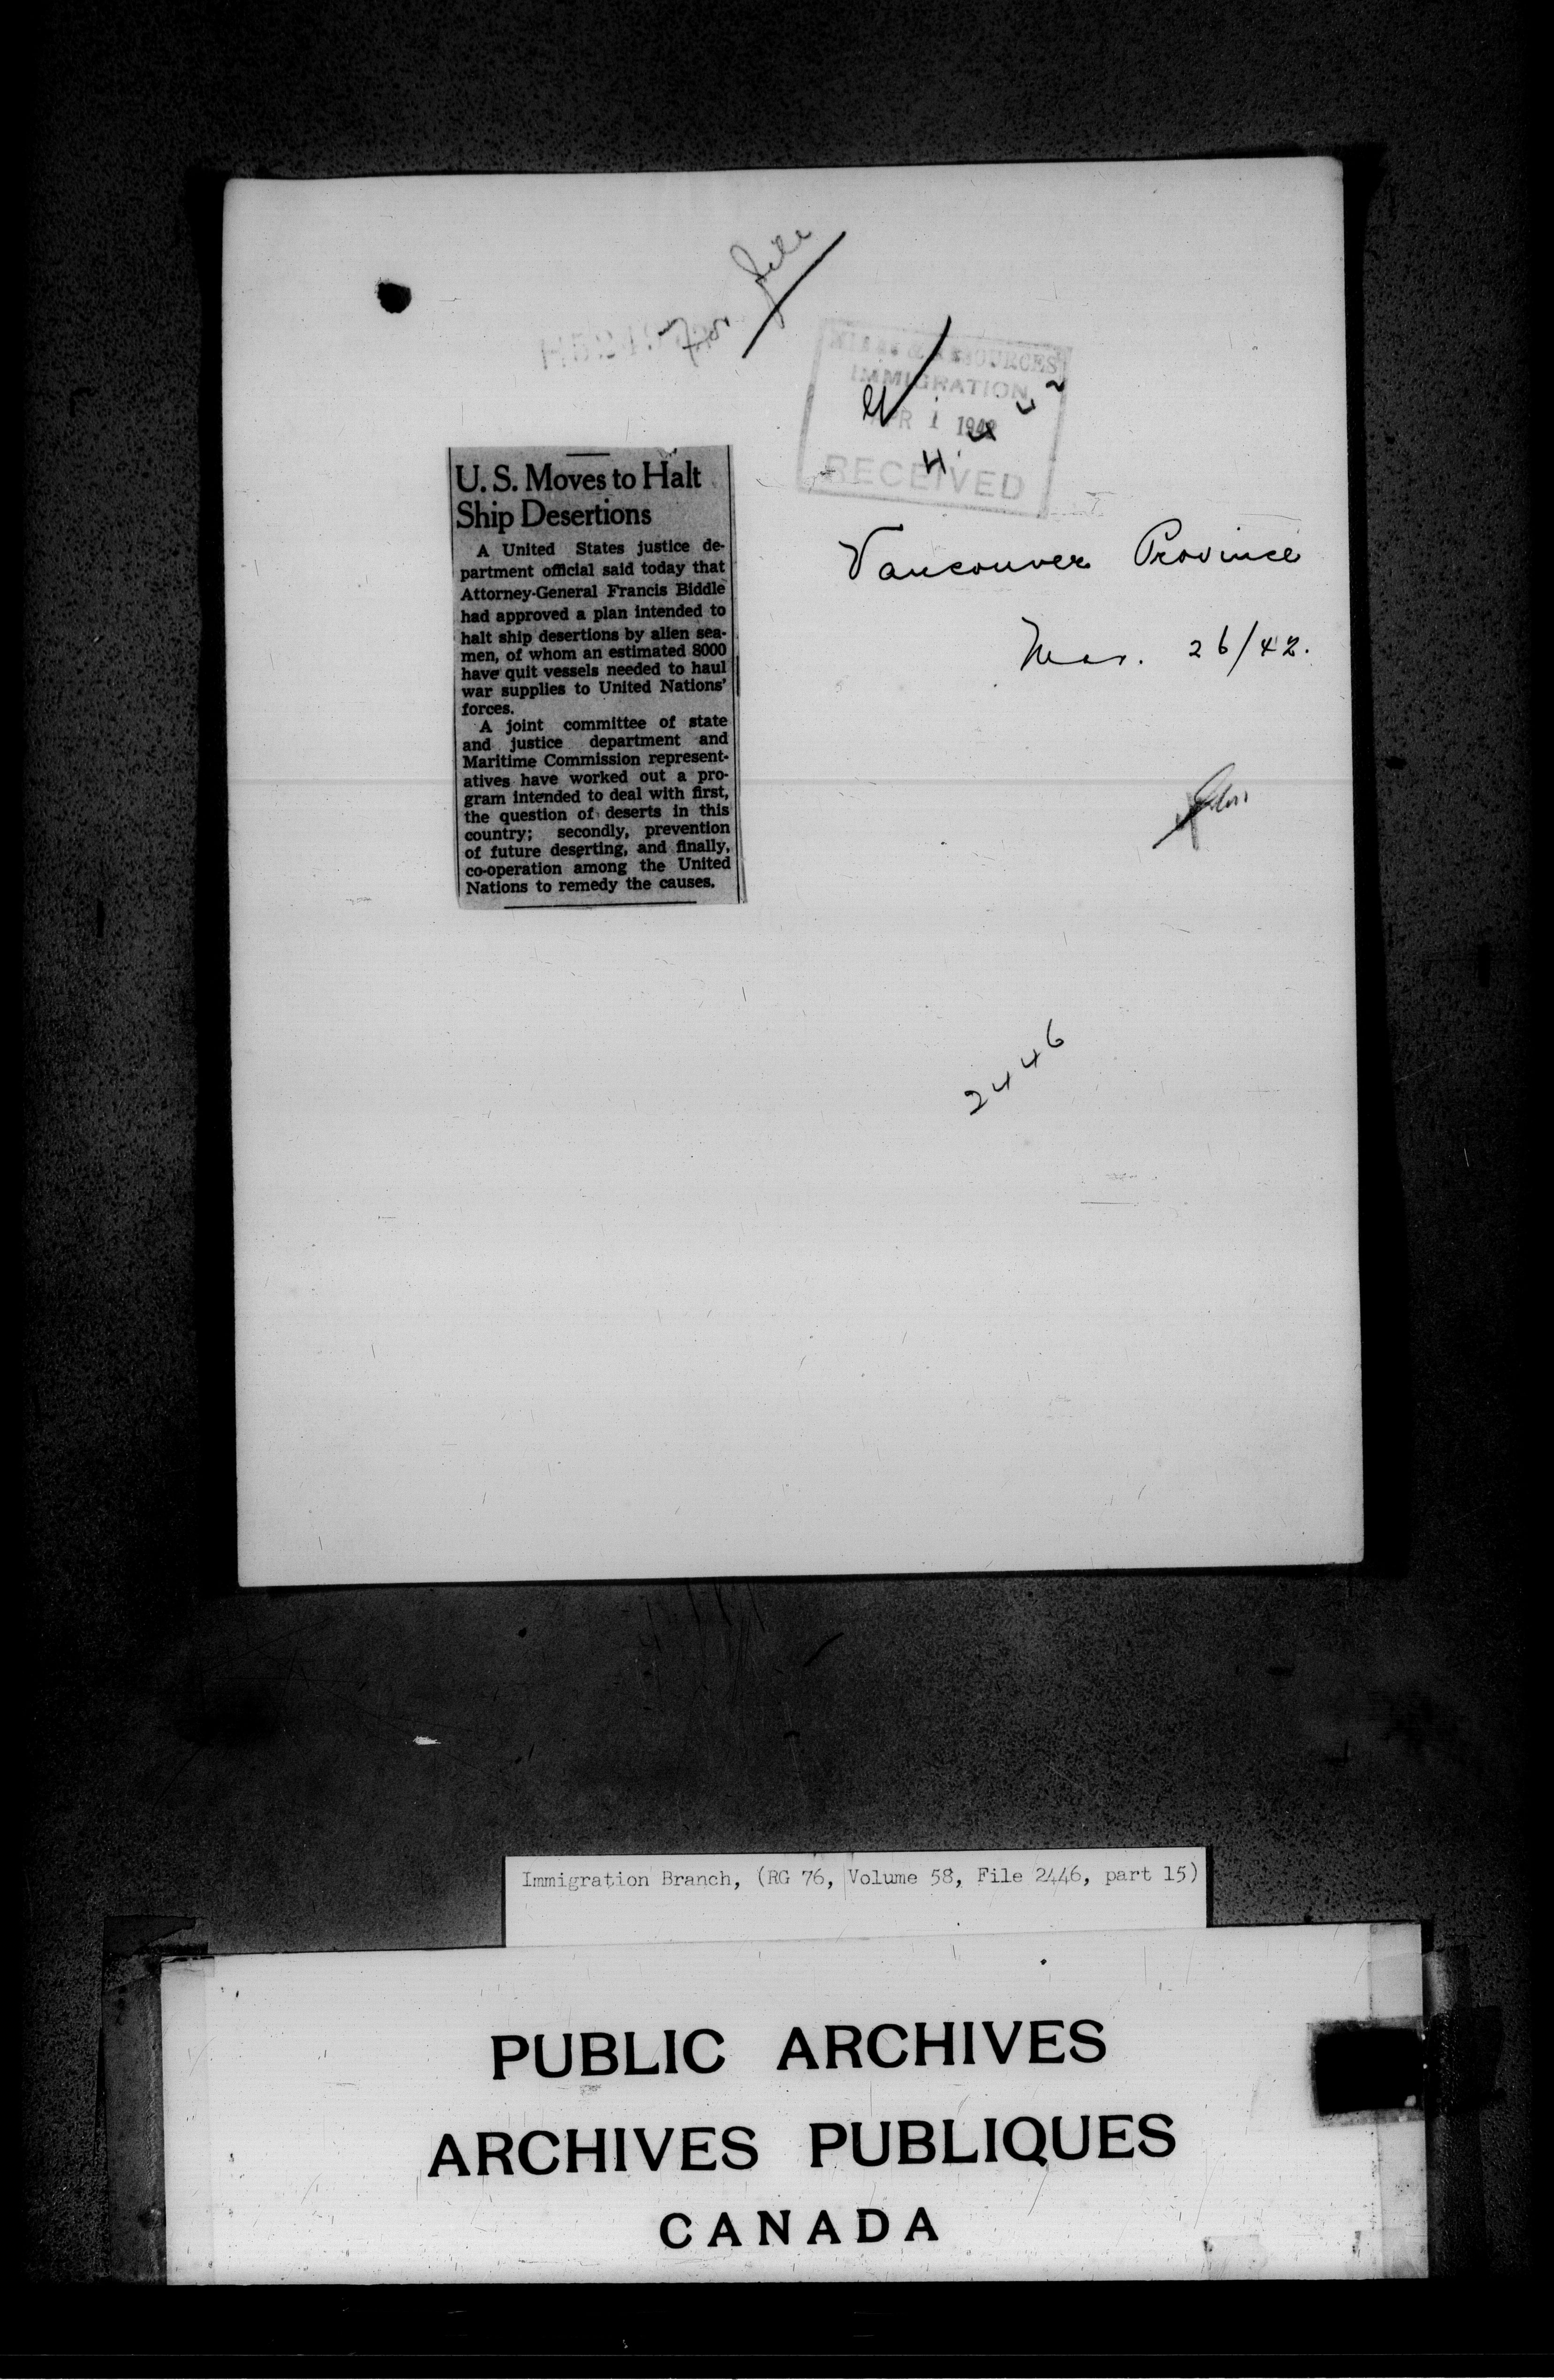 For file
MINES & RESOURCES
IMMIGRATION
APR 1 1942
RECEIVED
U. S. Moves to Halt
Ship Desertions
A United States justice de-
partment official said today that
Attorney-General Francis Biddle
had approved a plan intended to
halt ship desertions by alien sea-
men, of whom an estimated 8000
have quit vessels needed to haul
war supplies to United Nations'
forces.
A joint committee of state
and justice department and
Maritime Commission represent-
atives have worked out a pro-
gram intended to deal with first,
the question of deserts in this
country; secondly, prevention
of future deserting, and finally,
co-operation among the United
Nations to remedy the causes.
Vancouver Province
Mar. 26/42.
2446
Immigration Branch, (RG 76, Volume 58, File 2446, part 15)
PUBLIC ARCHIVES
ARCHIVES PUBLIQUES
CANADA